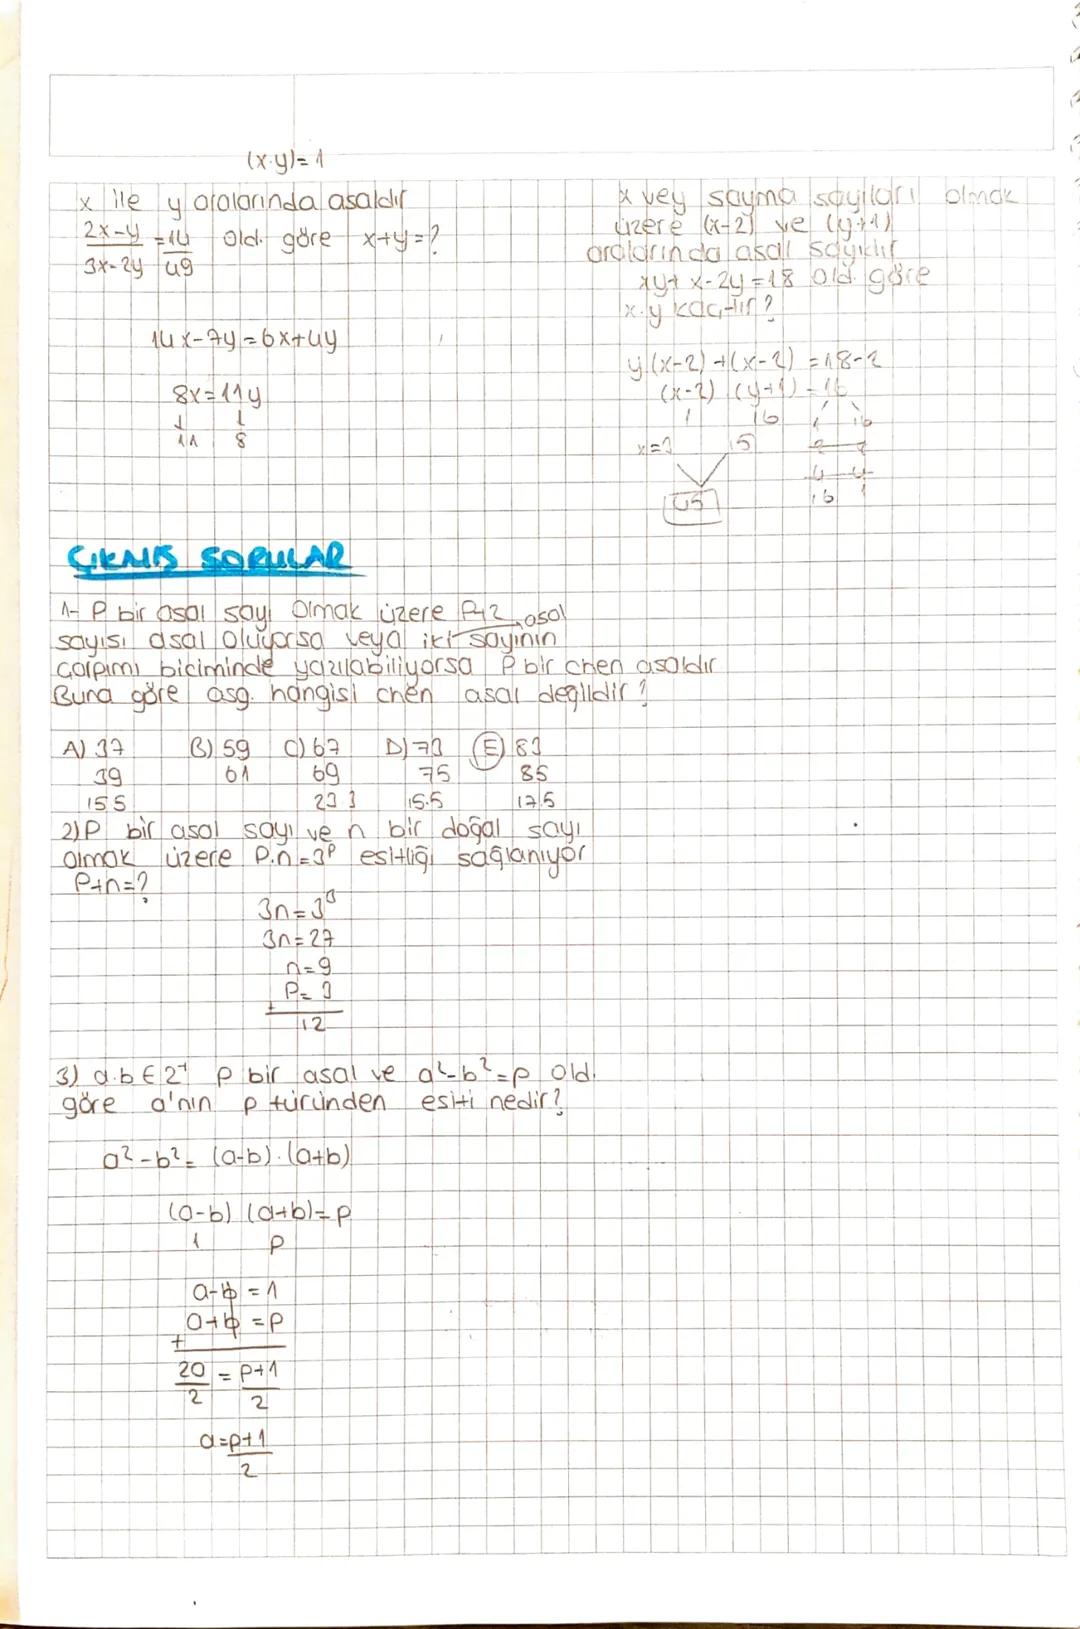 (x.y)=1
x ile y aralarında asaldır
2x-y/3x-2y = 14/49 old. göre x+y=?
14x-7y=6x+4y
8x=11y
11 8
x ve y sayma sayıları olmak
üzere (x-2) ve (y+1)
aralarında asal sayıdır
xy+x-2y=18 old. göre
x.y kaçtır?
y(x-2)+(x-2)=18-2
(x-2)(y+1)=16
1 16 1 16
x=3 15 2
4 4
45 16 1
ÇIKMIŞ SORULAR
1- P bir asal sayı olmak üzere P+2 asal
sayısı asal oluyorsa veya iki sayının
çarpımı biçiminde yazılabiliyorsa P bir chen asaldır
Buna göre aşg. hangisi chen asal değildir?
A) 37 B) 59 C) 67 D) 73 E) 83
39 61 69 75 85
155 233 15.5 17.5
2) P bir asal sayı ve n bir doğal sayı
olmak üzere P.n=3ᵖ esitliği sağlanıyor
P+n=?
3n=3³
3n=27
n=9
+ P=3
12
3) a.b∈Z⁺ p bir asal ve a²-b²=p old.
göre a'nın p türünden esiti nedir?
a²-b²=(a-b).(a+b)
(a-b)(a+b)=p
1 p
a-b=1
a+b=p
+
2a/2=p+1/2
a=p+1/2